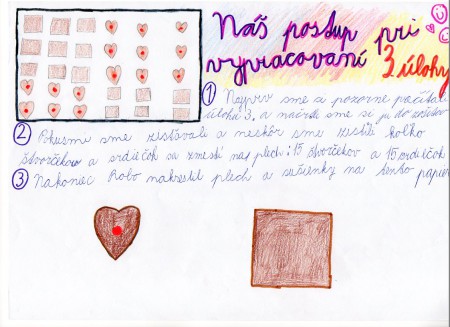 Náš postup pri
vypracovaní 3 úlohy
1 Najprv sme si pozorne prečítali
úlohu 3, a načrtli sme si ju do zošitov
2 Pokusmi sme zisťovali a neskôr sme zistili koľko
štvorčekov a srdiečok sa zmestí na plech: 15 štvorčekov a 15 srdiečok
3 Nakoniec Robo nakreslil plech a sušienky na tento papier